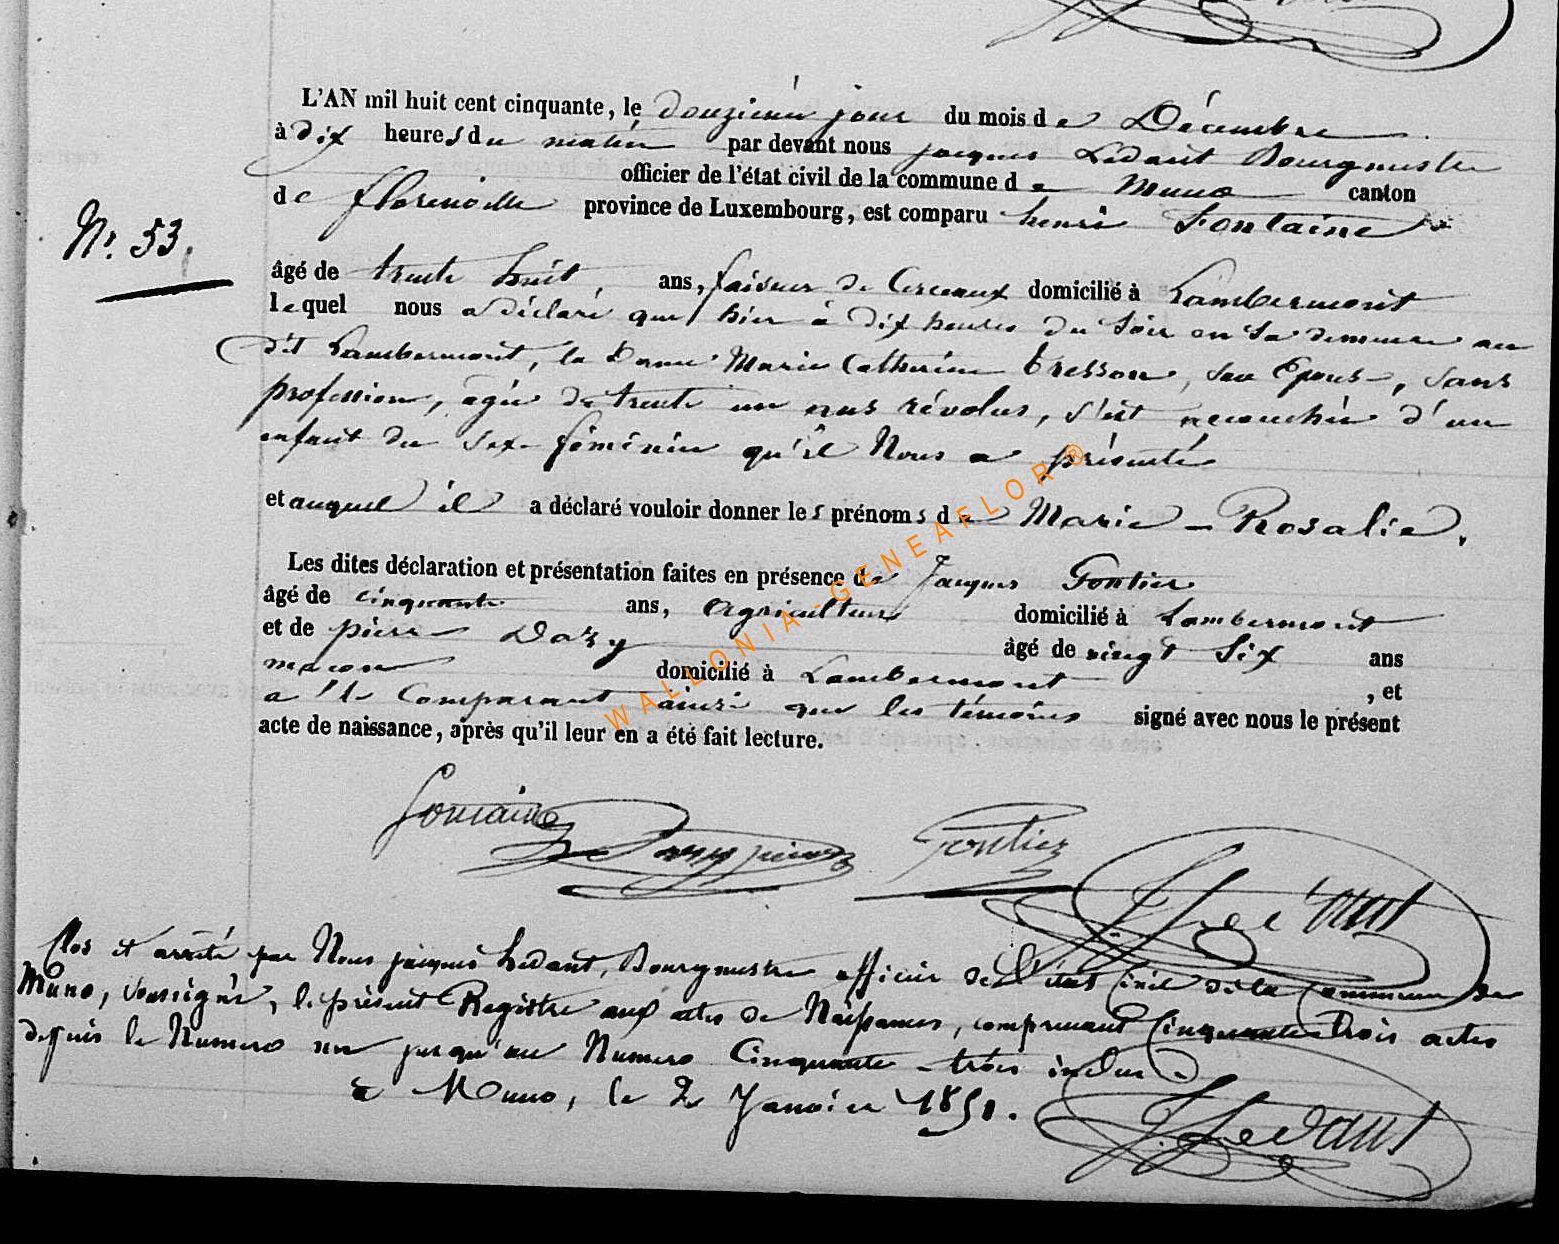 L'AN mil huit cent cinquante, le douzième jour du mois de Décembre
à dix heures du matin par devant nous jacques Ledant Bourgmestre
officier de l'état civil de la commune de Muno canton
de florenville province de Luxembourg, est comparu henri Fontaine
Nº. 53.
âgé de trente huit, ans, faiseur de Cerceaux domicilié à Lambermont
lequel nous a déclaré que hier à dix heures du soir en sa demeure au
dit Lambermont, la Dame Marie Catherine Tresson, son Epouse, sans
profession, agée de trente un ans révolus, s'est accouchée d'un
enfant du sexe féminin qu'il Nous a présenté
et auquel il a déclaré vouloir donner les prénoms de Marie - Rosalie.
Les dites déclaration et présentation faites en présence de Jacques Pontier
âgé de cinquante ans, agriculteur domicilié à Lambermont
et de pierre Dazy âgé de vingt Six ans
macon domicilié à Lambermont, et
a le Comparant ainsi que les témoins signé avec nous le présent
acte de naissance, après qu'il leur en a été fait lecture.
WALLONIA-GENEAFLOR®
Fontaine Dazy pierre Pontier
J. Ledant
Clos et arrêté par Nous jacques Ledant, Bourgmestre officier de l'état Civil de la Commune de
Muno, soussigné, le présent Registre aux actes de Naissances, comprenant Cinquante trois actes
depuis le Numero un jusqu'au Numero Cinquante - trois inclus
à Muno, le 2 Janvier 1851.
J. Ledant